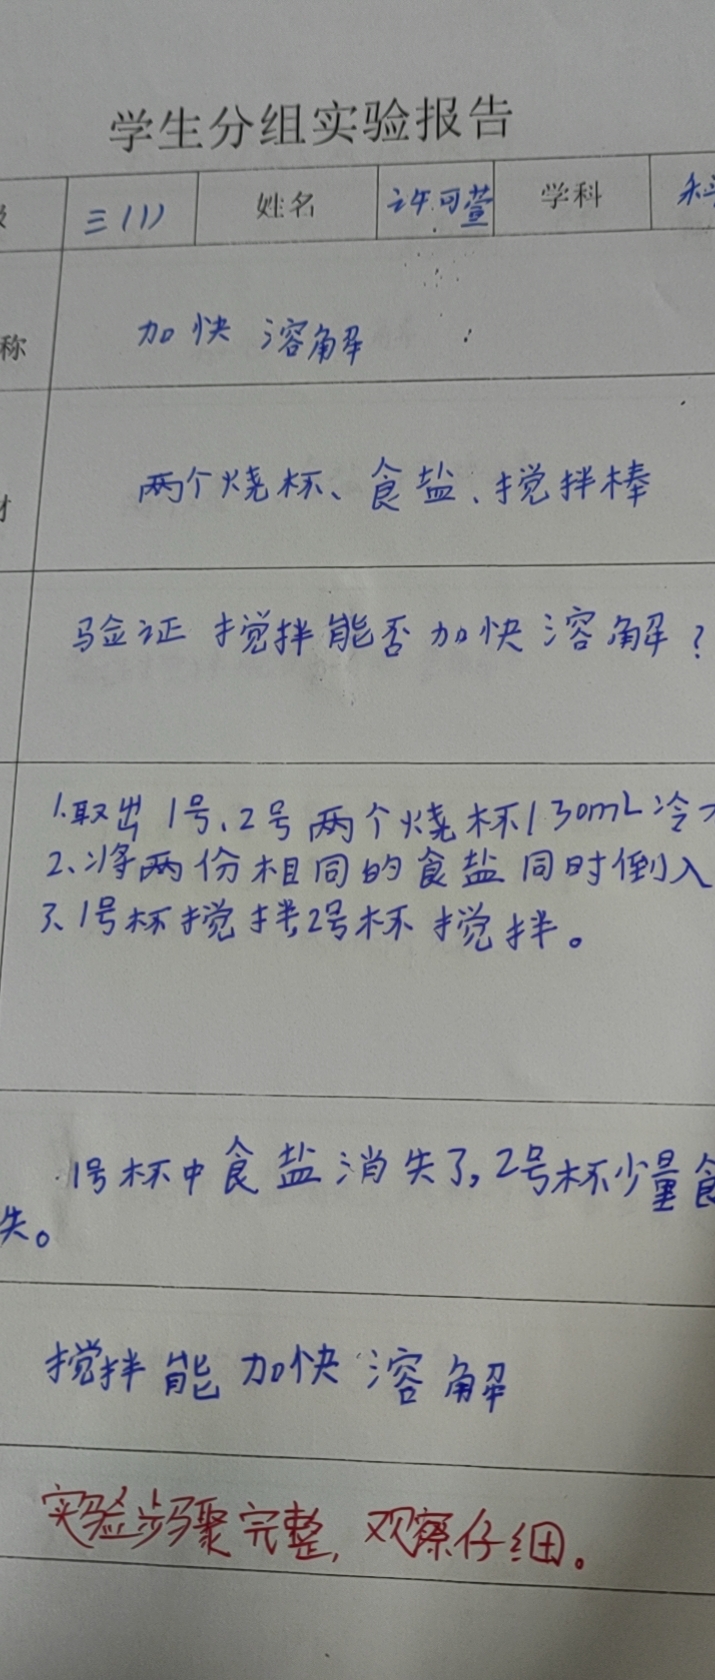 学生分组实验报告
三(1) 姓名 许可萱 学科
称 加快溶解
两个烧杯、食盐、搅拌棒
验证搅拌能否加快溶解?
1.取出1号、2号两个烧杯130mL冷
2、将两份相同的食盐同时倒入
3、1号杯搅拌,2号杯搅拌。
1号杯中食盐消失了,2号杯少量食
失。
搅拌能加快溶解
实验步骤完整,观察仔细。